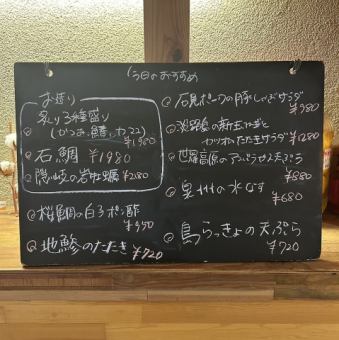 今日のおすすめ
お造り
炙り3種盛り
(かつお、鯖、カマス)
¥1980
石鯛 ¥1980
隠岐の岩牡蠣 ¥280
桜鯛の白子ポン酢
地鯵のたたき ¥720
石見ポークの豚しゃぶサラダ
¥980
淡路島の新玉ねぎと
かつおのたたきサラダ
¥1280
世羅高原のアスパラ天ぷら
¥880
泉州の水なす
¥680
島らっきょの天ぷら
¥720